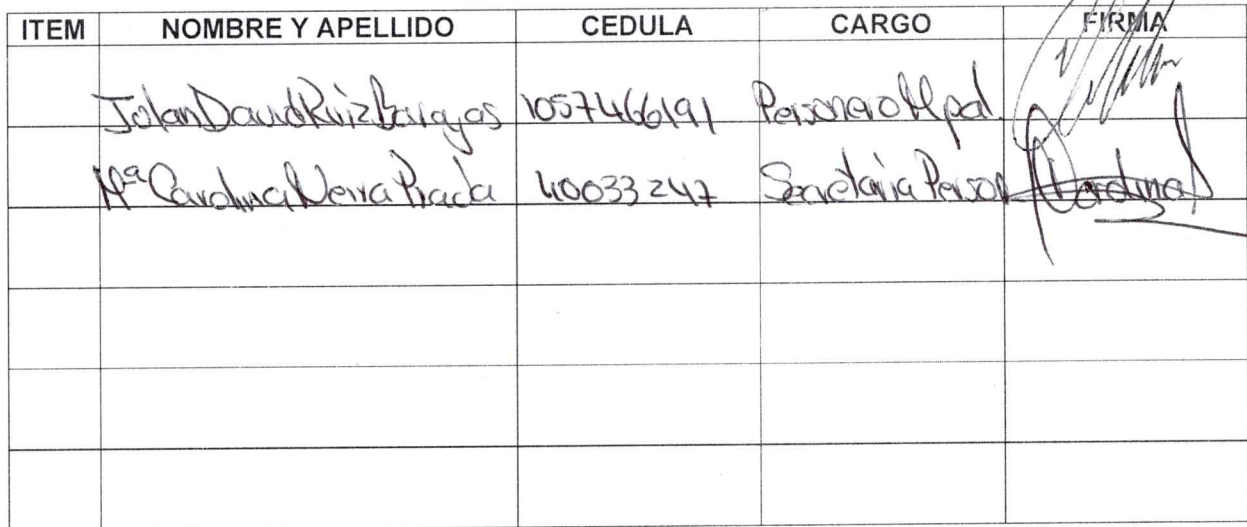 ITEM NOMBRE Y APELLIDO CEDULA CARGO FIRMA
Johan David Ruiz Barajas 1057466191 Personero Mpal.
Mª Carolina Neira Prada 40033247 Secretaria Person